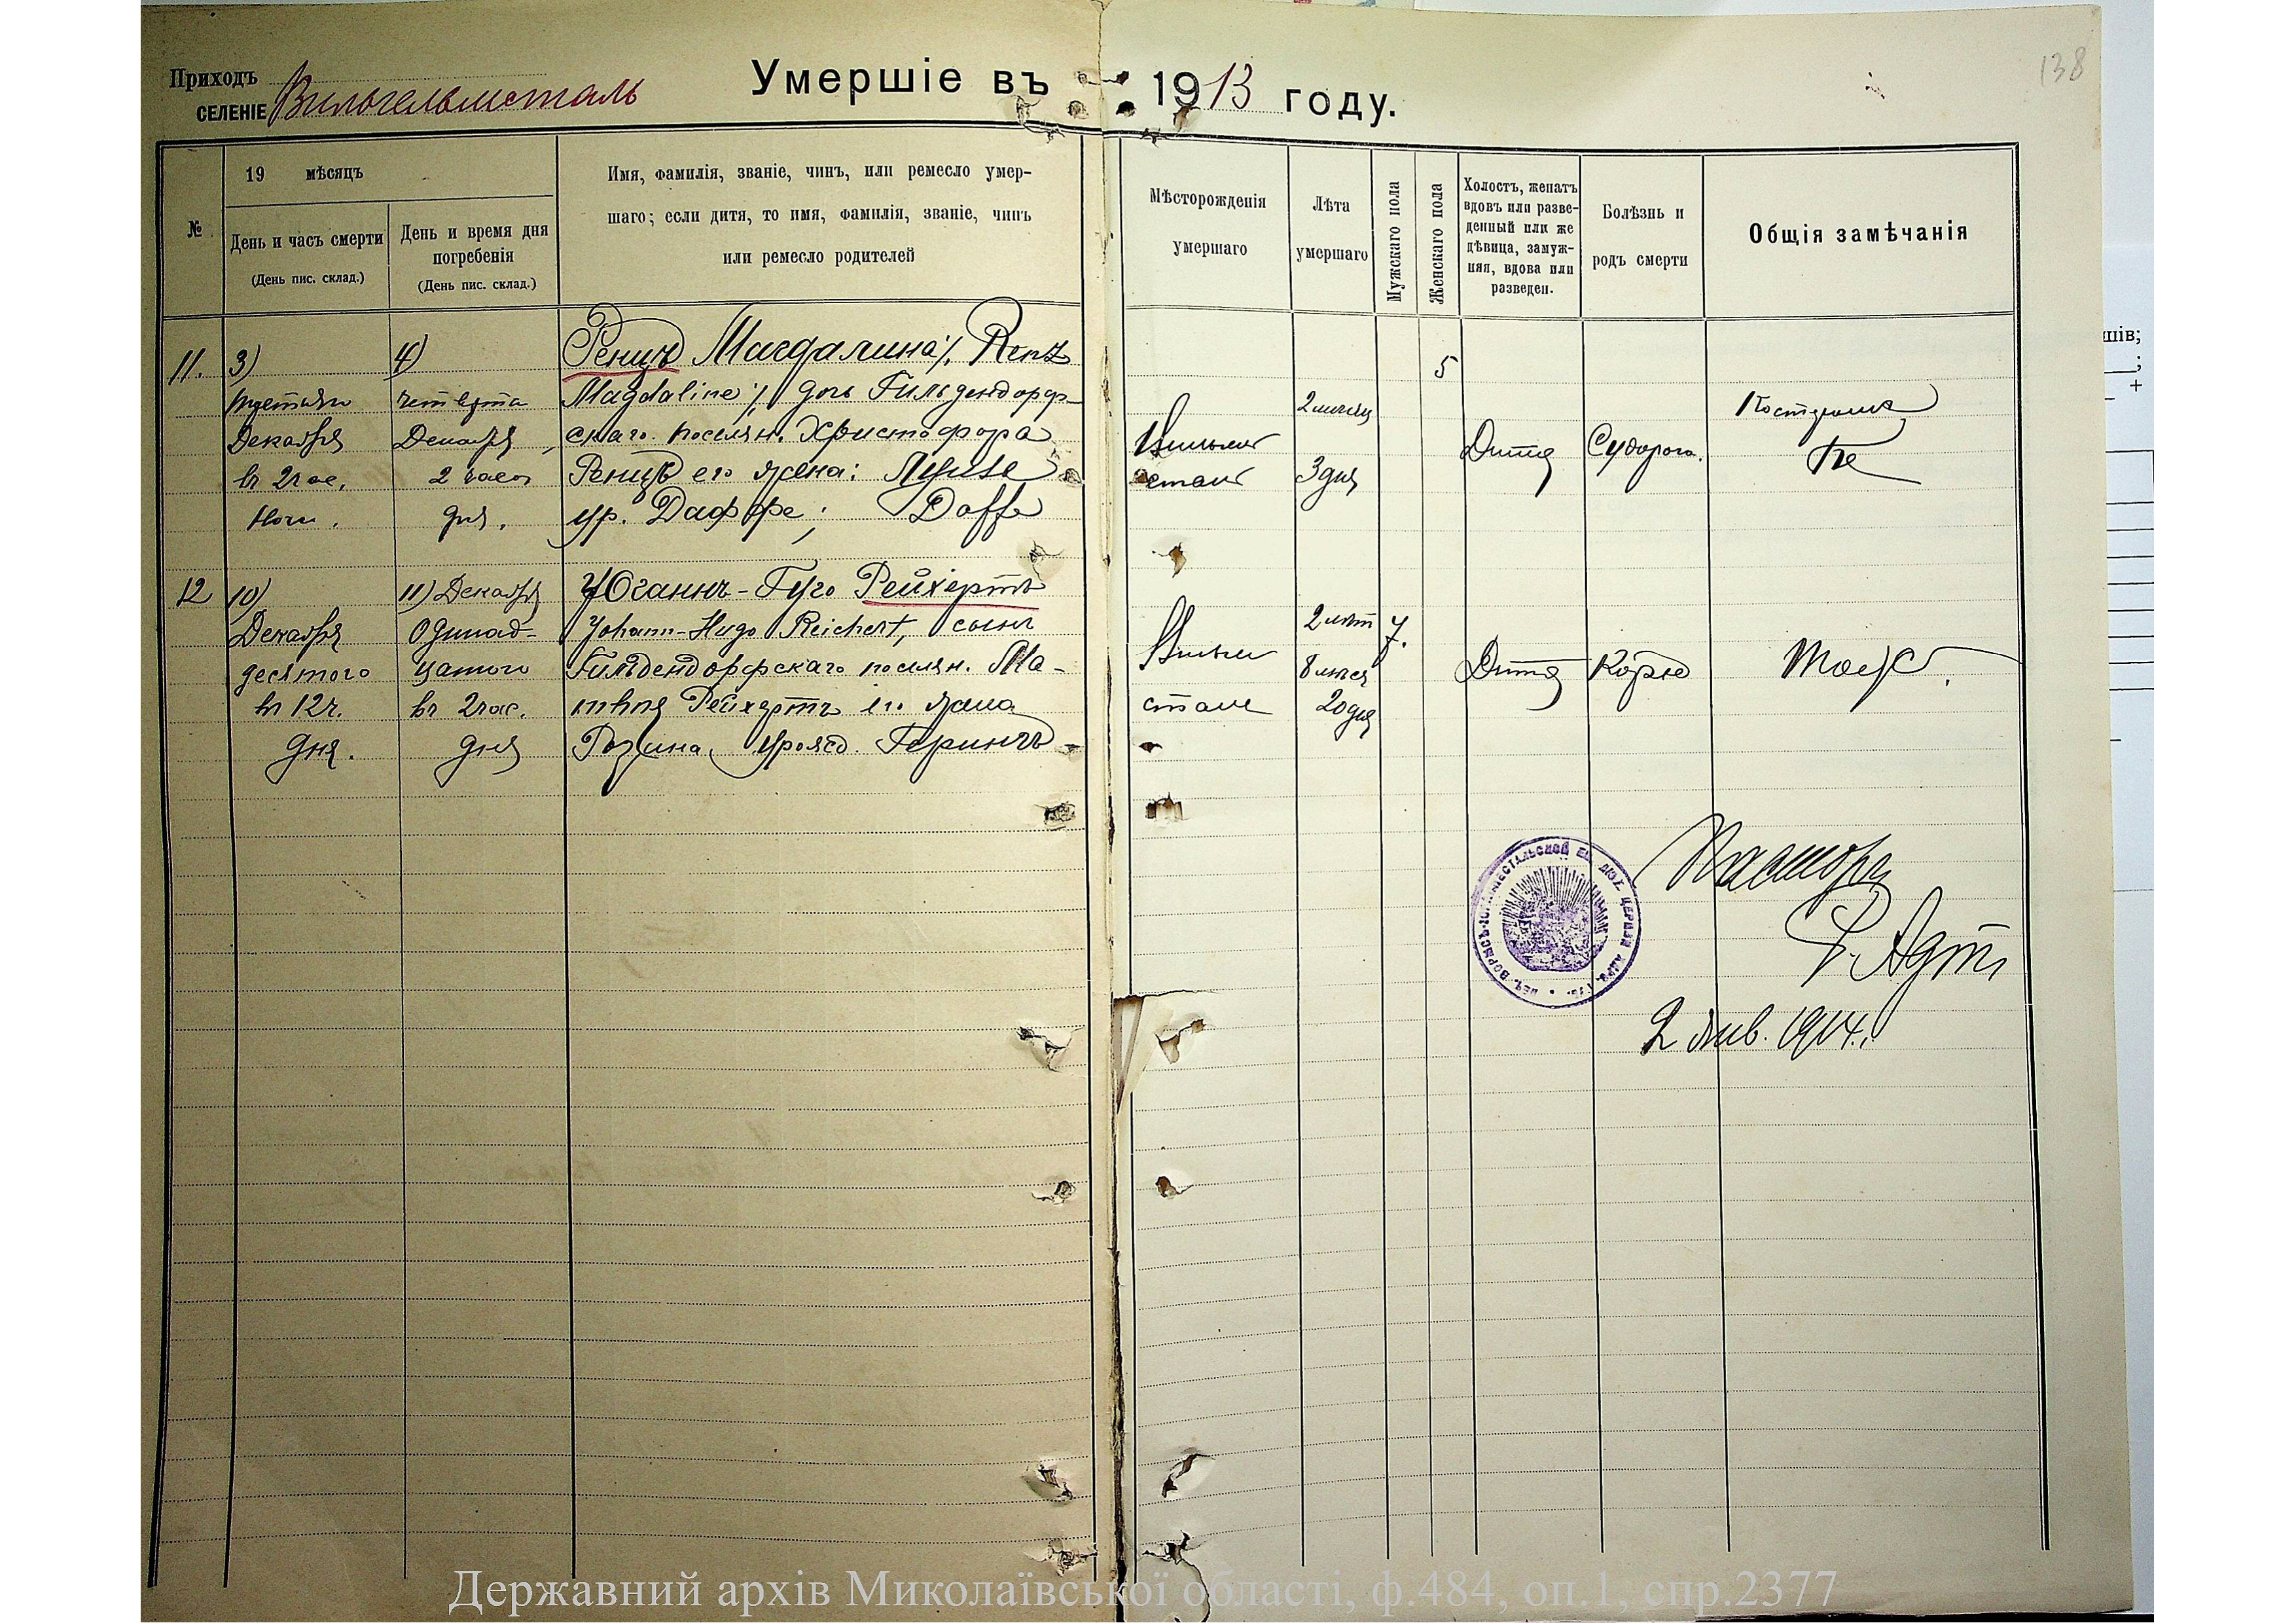 138
Приходъ
СЕЛЕНІЕ Вильгельмсталь
Умершіе въ 1913 году.
№
19 мѣсяцъ
День и часъ смерти
(День пис. склад.)
День и время дня
погребенія
(День пис. склад.)
Имя, фамилія, званіе, чинъ, или ремесло умер-
шаго; если дитя, то имя, фамилія, званіе, чинъ
или ремесло родителей
Мѣсторожденія
умершаго
Лѣта
умершаго
Мужскаго пола
Женскаго пола
Холостъ, женатъ
вдовъ или разве-
денный или же
дѣвица, замуж-
няя, вдова или
разведен.
Болѣзнь и
родъ смерти
Общія замѣчанія
11.
3)
третьяго
Декабря
въ 2 час.
ночи.
4)
Декабря,
2 часа
дня.
Ренцъ Магдалина /. Renz
Magdaline /, дочь Гильдендорф-
скаго поселян. Христофора
Ренцъ его жена:
ур. Даффе; Daffe
5
3 дня
Дитя
12
10)
Декабря
десятого
въ 12 ч.
дня.
11) Декабря
Одинад-
цатого
въ 2 час.
дня
Юганнъ-Гуго Рейхертъ
Johann-Hugo Reichert, сынъ
Гильдендорфскаго поселян. Ма-
твѣя Рейхертъ его жена
Розина, урожд. Герингъ
2 лѣт
20 дня
7.
Дитя
Корье
Пасторъ
2 Янв. 1914.
Державний архів Миколаївської області, ф.484, оп.1, спр.2377